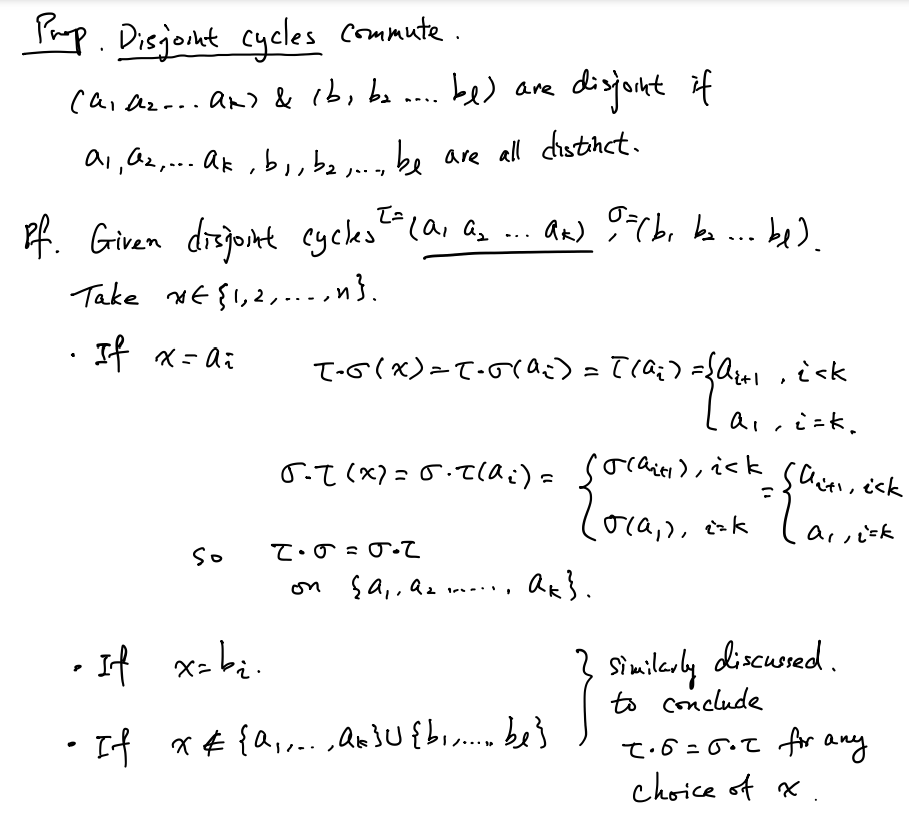 Prop. Disjoint cycles commute.
(a₁ a₂ ... aₖ) & (b₁ b₂ .... bₗ) are disjoint if
a₁, a₂, ... aₖ, b₁, b₂, ..., bₗ are all distinct.
Pf. Given disjoint cycles τ=(a₁ a₂ ... aₖ), σ=(b₁ b₂ ... bₗ).
Take x∈{1,2,....,n}.
· If x=aᵢ τ·σ(x)=τ·σ(aᵢ)=τ(aᵢ)={aᵢ₊₁, i<k
a₁, i=k.
σ·τ(x)=σ·τ(aᵢ)={σ(aᵢ₊₁), i<k ={aᵢ₊₁, i<k
σ(a₁), i=k a₁, i=k
so τ·σ=σ·τ
on {a₁, a₂ ......, aₖ}.
· If x=bᵢ. } similarly discussed.
to conclude
· If x∉{a₁,...,aₖ}∪{b₁,....,bₗ} τ·σ=σ·τ for any
choice of x.